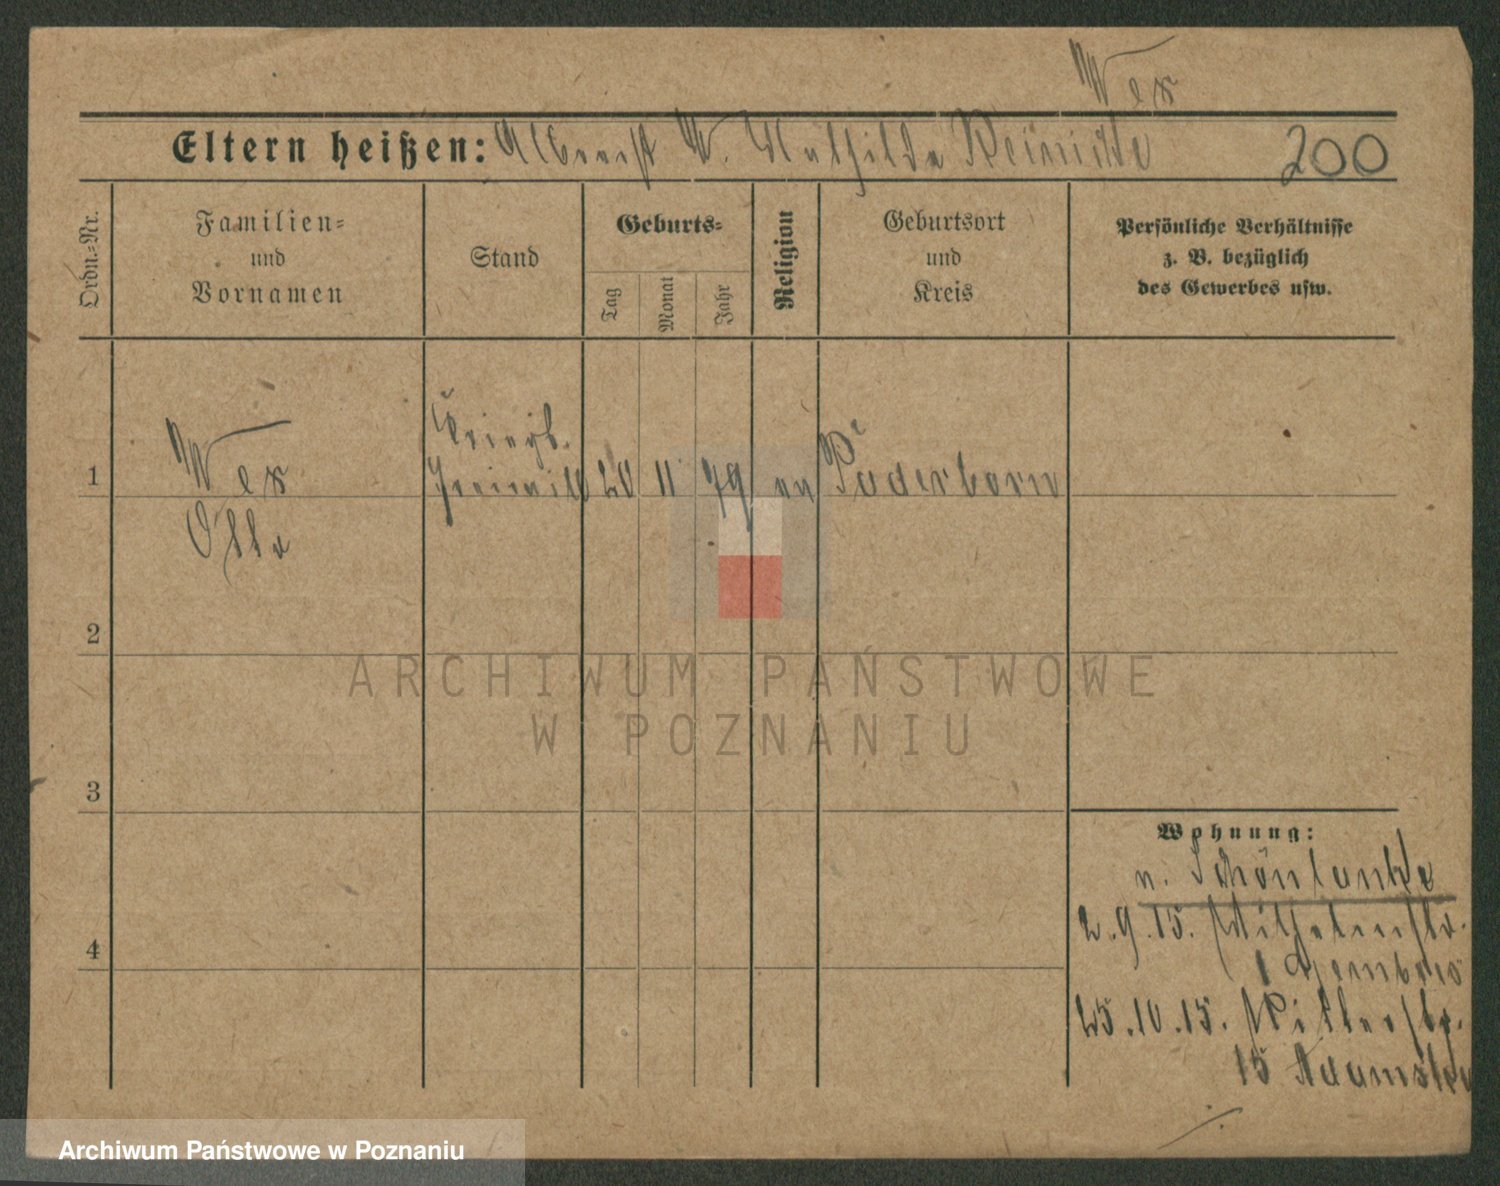 Wex
Eltern heißen: Albrecht W. Mathilde Reinicke 200
Ordn.-Nr.
Familien-
und
Vornamen
Stand
Geburts-
Tag
Monat
Jahr
Religion
Geburtsort
und
Kreis
Persönliche Verhältnisse
z. B. bezüglich
des Gewerbes usw.
Kriegs.
1 Wex Freiwill 20 11 79 ev Paderborn
Otto
2
ARCHIWUM PAŃSTWOWE
W POZNANIU
3
Wohnung:
n. Schönlanke
4
2.9.15. Wilhelmstr.
25.10.15. Ritterstr.
15 Adamski
Archiwum Państwowe w Poznaniu